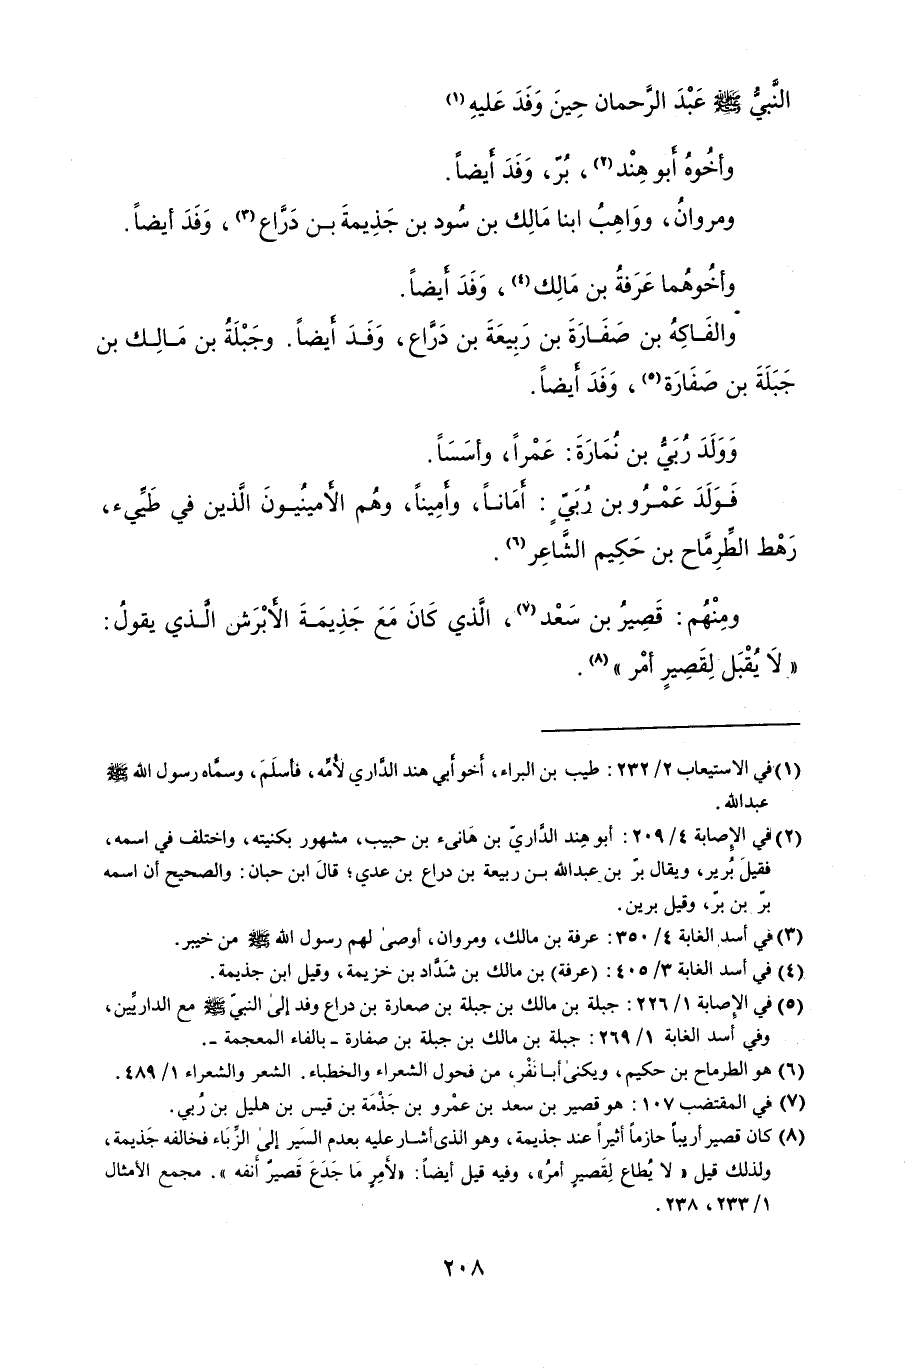 النَّبيُّ ﷺ عَبْدَ الرَّحمان حِينَ وَفَدَ عَليهِ (١)
وأخُوهُ أَبو هِنْد(٢) ، بُرّ، وَفَدَ أَيضاً.
ومروانُ، وواهِبُ ابنا مَالِك بن سُود بن جَذِيمةَ بـن دَرَّاع(٣) ، وَفَدَ أيضاً.
وأخُوهُما عَرَفةُ بن مَالِك(٤) ، وَفَدَ أَيضاً.
والفَـاكِهُ بن صَفَـارَةَ بن رَبِيعَةَ بن دَرَّاع، وَفَـدَ أَيضـاً. وجَبْلَةُ بن مَـالِـك بن
جَبَلَةَ بن صَفَارَة(٥) ، وَفَدَ أَيضاً.
وَوَلَدَ رُبَيُّ بن نُمَارَةَ: عَمْراً، وأسَسَاً.
فَـوَلَدَ عَمْـرُو بن رُبَيٍّ : أَمَانـاً، وأَمِيناً، وهُم الأَمينُيـونَ الَّذين في طَيِّيء،
رَهْط الطِّرِمَّاح بن حَكِيم الشَّاعِر(٦) .
ومِنْهُم: قَصِيرُ بن سَعْد(٧)، الَّذي كَانَ مَعَ جَذِيمَـةَ الأَبْرَش الَّـذي يقولُ:
« لاَ يُقْبَل لِقَصِيرٍ أمْر »(٨) .
(١) في الاستيعاب ٢/ ٢٣٢: طيب بن البراء، أخو أبي هند الدَّاري لأُمِّه، فأسلَمَ، وسمَّاه رسول الله ﷺ
عبدالله .
(٢) في الإصابة ٤/ ٢٠٩: أبو هِند الدَّاريّ بن هَانىء بن حبيب، مشهور بكنيته، واختلف في اسمه،
فقيلَ بُرير، ويقال برّ بن عبدالله بـن ربيعة بن دراع بن عدي؛ قالَ ابن حبان: والصحيح أن اسمه
برّ بن برّ، وقيل برين.
(٣) في أسد الغابة ٤/ ٣٥٠: عرفة بن مالك، ومروان، أوصىٰ لهم رسول الله ﷺ من خيبر.
(٤) في أسد الغابة ٣/ ٤٠٥: (عرفة) بن مالك بن شَدَّاد بن خزيمة، وقيل ابن جذيمة.
(٥) في الإصابة ١/ ٢٢٦: جبلة بن مالك بن جبلة بن صعارة بن دراع وفد إلىٰ النبيّ ﷺ مع الداريِّين،
وفي أسد الغابة ١/ ٢٦٩: جبلة بن مالك بن جبلة بن صفارة ـ بالفاء المعجمة ـ.
(٦) هو الطرماح بن حكيم، ويكنىٰ أبـا نَفْر، من فحول الشعراء والخطباء. الشعر والشعراء ١/ ٤٨٩ .
(٧) في المقتضب ١٠٧: هو قصير بن سعد بن عمْرو بن جَذْمَة بن قيس بن هليل بن رُبي.
(٨) كان قصير أريباً حازماً أثيراً عند جذيمة، وهو الذي أشـار عليه بعدم السَّير إلىٰ الزَّباء فخالفه جَذيمة،
ولذلك قيل « لا يُطاع لِقَصيرٍ أمرُ»، وفيه قيل أيضاً: «لأمرٍ مَا جَدَعَ قَصيرٌ أنفه ». مجمع الأمثال
١/ ٢٣٣، ٢٣٨.
٢٠٨